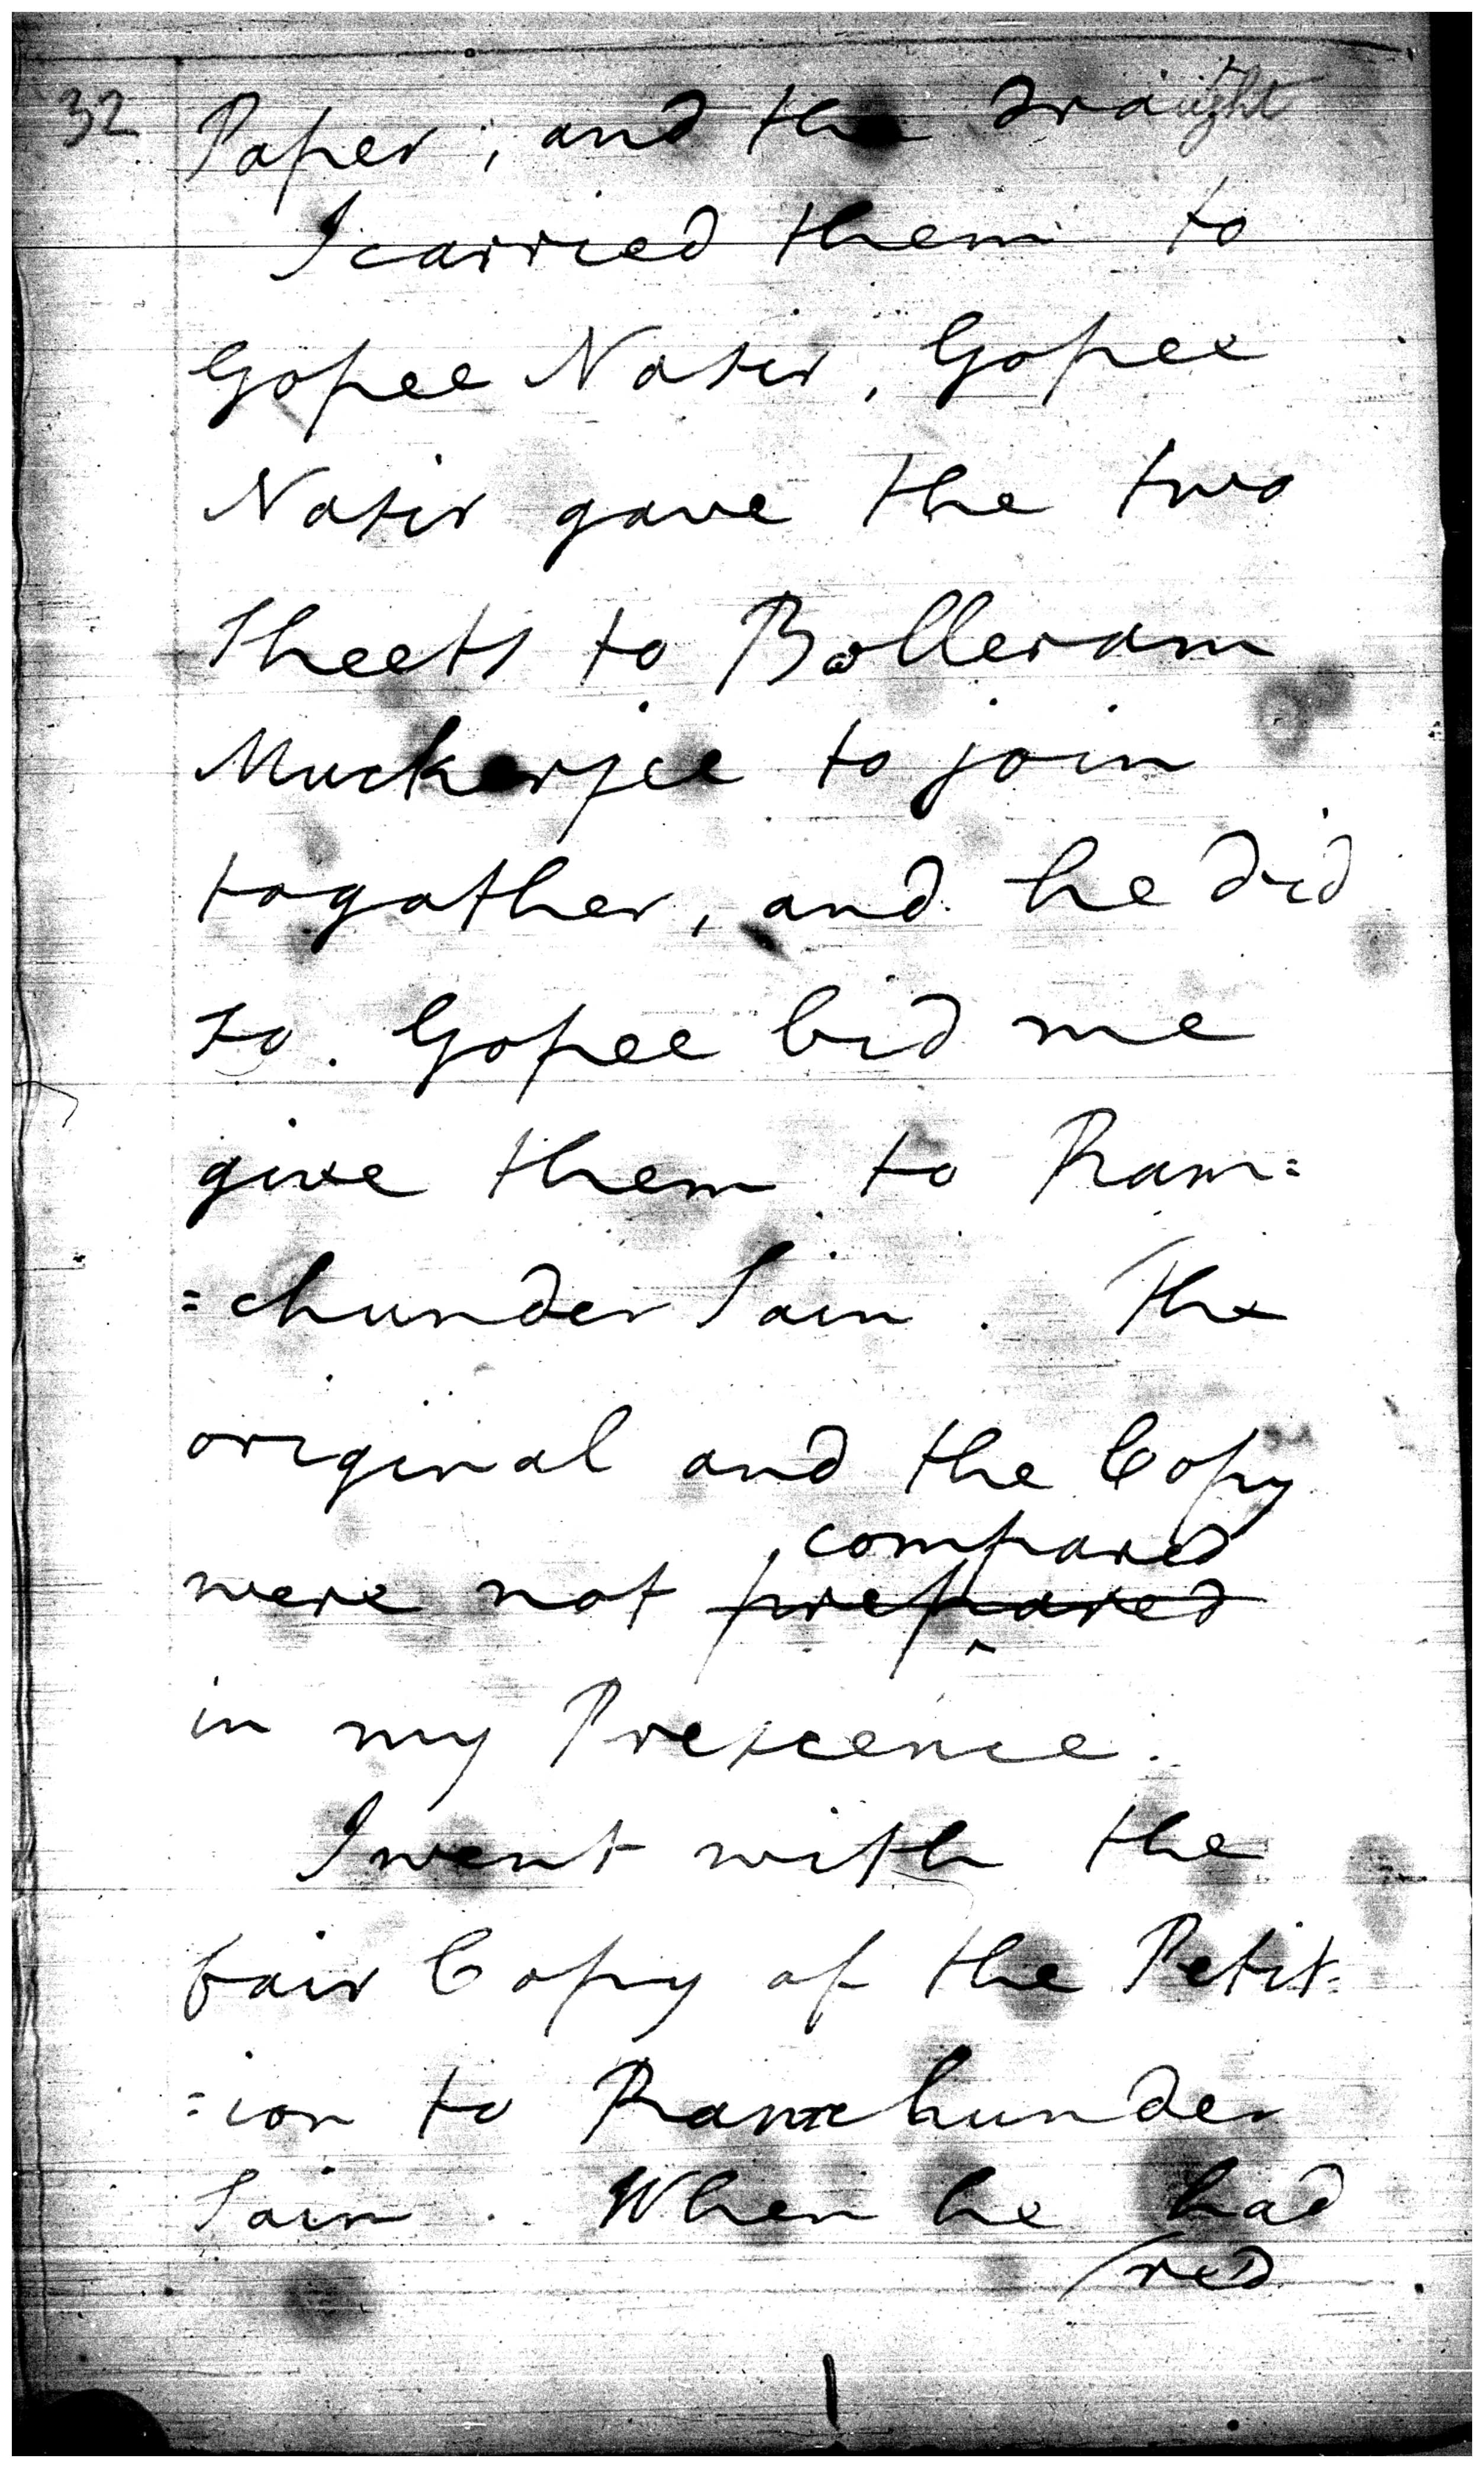 32
Paper, and the draught
I carried them to
Gopee Nasir, Gopee
Nasir gave the two
Sheets to Bolleram
Muckerjee to join
togather, and he did
so. Gopee bid me
give them to Ram=
=chunder Sain. The
original and the Copy
compared
were not prepared
in my Prescence.
I went with the
fair Copy of the Petit=
=ion to Ramchunder
Sain. When he had
red